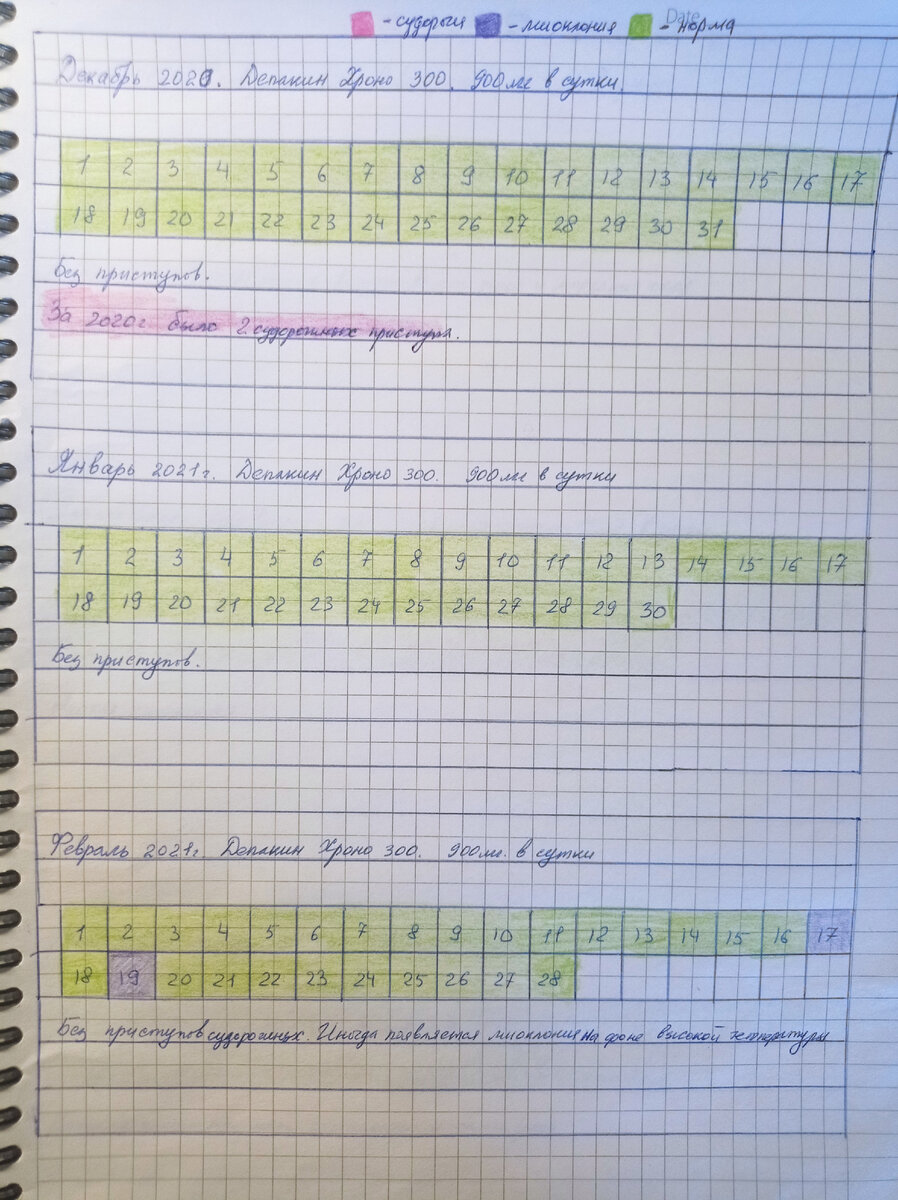 Date
- судороги - миоклония - норма
Декабрь 2020. Депакин Хроно 300. 900мг в сутки.
1 2 3 4 5 6 7 8 9 10 11 12 13 14 15 16 17
18 19 20 21 22 23 24 25 26 27 28 29 30 31
Без приступов.
За 2020г было 2 судорожных приступа.
Январь 2021г. Депакин Хроно 300. 900мг в сутки
1 2 3 4 5 6 7 8 9 10 11 12 13 14 15 16 17
18 19 20 21 22 23 24 25 26 27 28 29 30
Без приступов.
Февраль 2021г. Депакин Хроно 300. 900мг. в сутки
1 2 3 4 5 6 7 8 9 10 11 12 13 14 15 16 17
18 19 20 21 22 23 24 25 26 27 28
Без приступов судорожных. Иногда появляется миоклония на фоне высокой температуры